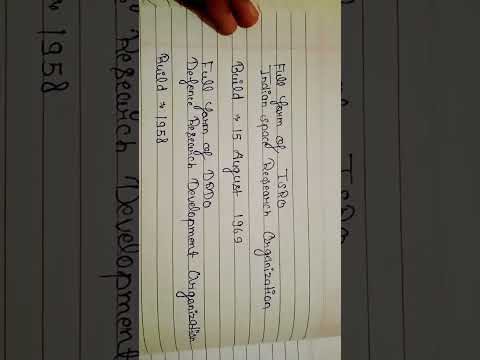 Full form of ISRO
Indian space Research Organization
Build → 15 August 1969
Full form of DRDO
Defence Research Development Organization
Build → 1958
Research Development
→ 1958